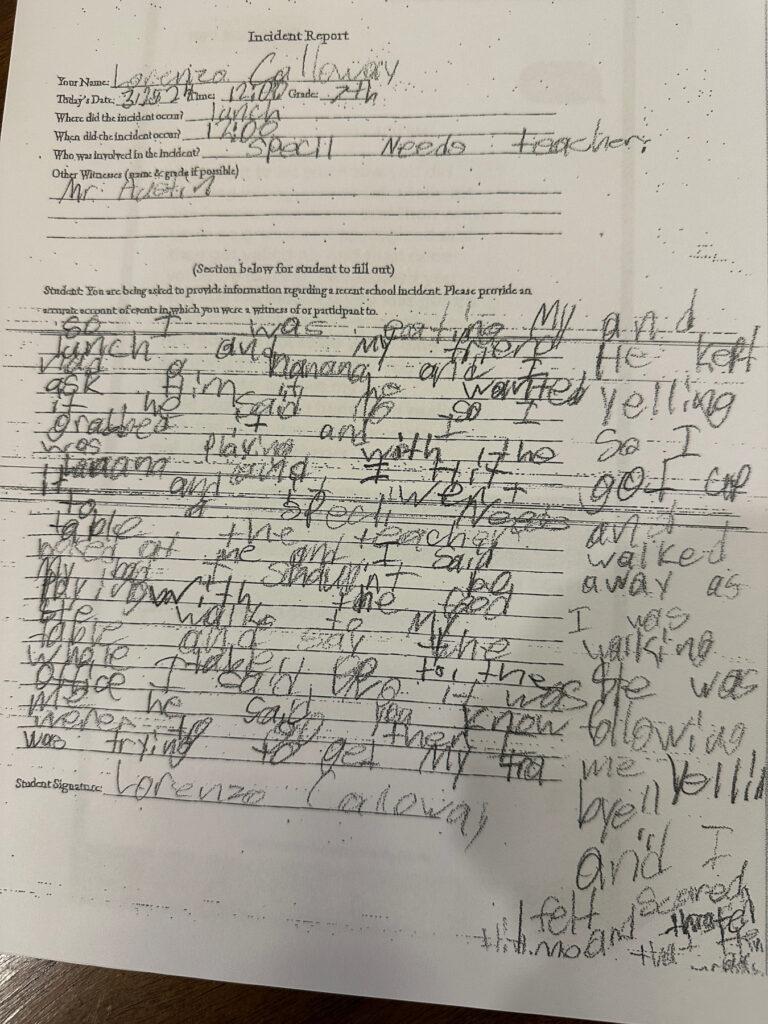 Incident Report
Your Name: Lorenzo Calloway
Today's Date: Time: 12:00 Grade: 7th
Where did the incident occur? lunch
When did the incident occur? 12:00
Who was involved in the incident? Specil Needs teacher.
Other Witnesses (name & grade if possible)
Mr. Austin
(Section below for student to fill out)
Student: You are being asked to provide information regarding a recent school incident. Please provide an
accurate account of events in which you were a witness of or participant to.
So I was eating My
lunch and My friend
Had a banana and I
ask him if he wanted
it he said no so I
grabbed it and I
was playing with the
banana and I hit
it and it went
to a Specil Needs
table the teacher
looked at me and I said
My bad I be
playing with the food
He walks to My
table and say the
whole table Go to the
office I said Bro it was
me he said you know
was trying to get My
and
He kept
yelling
So I
got up
and
walked
away as
I was
walking
He was
following
me
and I
felt scared
and
Student Signature: Lorenzo Calloway